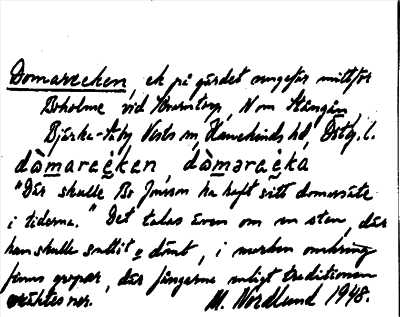 Domareeken, ek på gärdet ungefär mittför
Boholme vid Kvarntorp, N om Stångån
Bjärka-Säby, Vists sn, Hanekinds hd, Östg. l.
dòmaraèkan, dòməraèka
"Där skulle Bo Jonsson ha haft sitt domaresäte
i tiderna." Det talas även om en sten, där
han skulle suttit o dömt, i marken omkring
finns gropar, där fångarna enligt traditionen
M. Nordlund 1948.